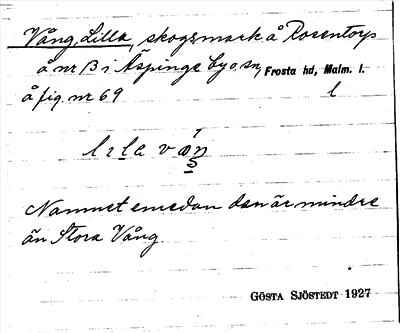 Vång, Lilla, skogsmark å Rosentorp
å nr 13 i Äspinge by o. sn, Frosta hd, Malm. l.
å fig. nr 69 l
lila
Namnet emedan den är mindre
än Stora Vång.
GÖSTA SJÖSTEDT 1927